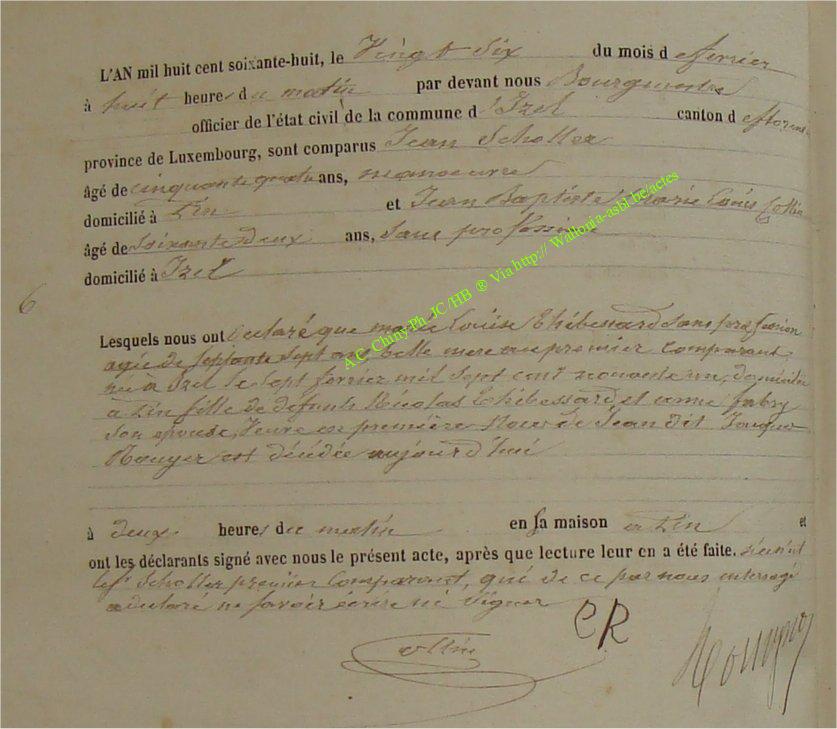 L'AN mil huit cent soixante-huit, le Vingt Six du mois d efferier
à huit heures du matin par devant nous Bourgmestre
officier de l'état civil de la commune d'Izel canton d
province de Luxembourg, sont comparus Jean Scholler
âgé de cinquante quatre ans, manoeuvre
domicilié à Pin et Jean Baptiste Marie Louis
âgé de Soixante deux ans, Sans profession
domicilié à Izel
6
Lesquels nous ont déclaré que marie Louise Thébessard sans profession
agée de Septante Sept ans belle mere au premier Comparant,
née à Izel le Sept fevrier mil Sept cent nonante un, domiciliée
à Pin fille de defunts Nicolas Thébessard et anne fabry
Son epouse, Veuve en première Noce de Jean dit
Rouyer est décédée aujourd'hui
à deux heures du matin en sa maison à Pin et
ont les déclarants signé avec nous le présent acte, après que lecture leur en a été faite.
Scholler premier Comparant, qui de ce par nous interrogé
a déclaré ne savoir écrire ni Signer
CR
A.C. Chiny Ph. JC /HB ® Via http:// Wallonia-asbl.be/actes